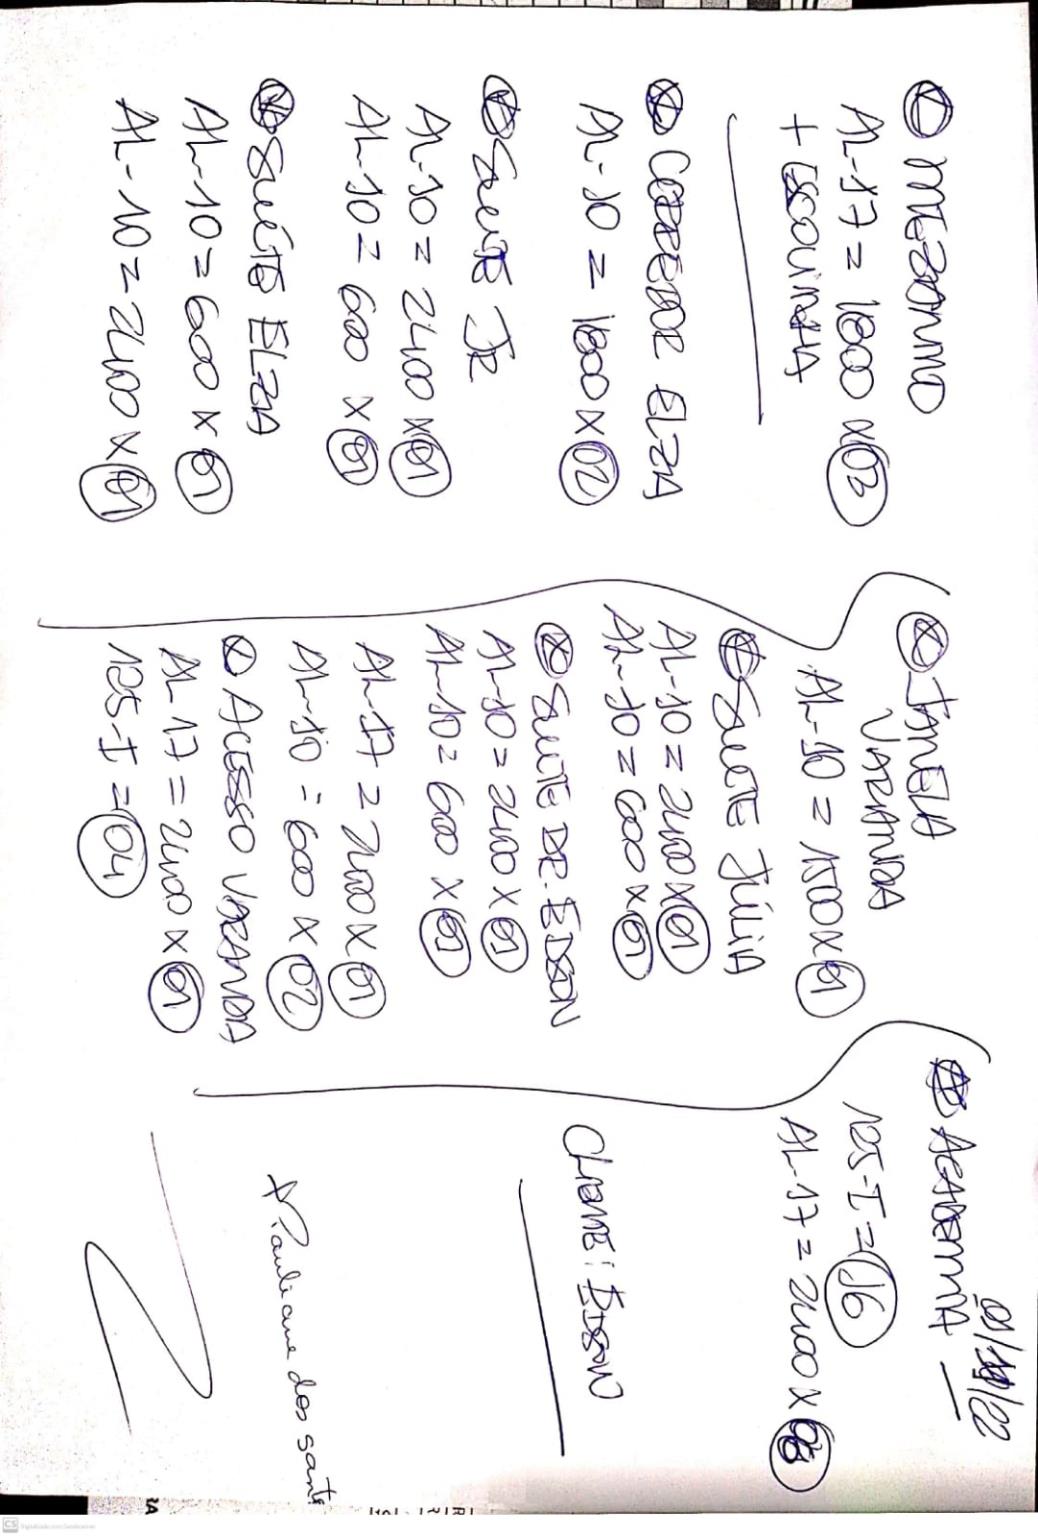 MEZANINO
AL-17 = 1800 x 03
+ ESQUINHA
CORREDOR ELZA
AL-10 = 1800 x 02
SUITE JR
AL-10 = 2400 x 01
AL-10 = 600 x 01
SUÍTE ELZA
AL-10 = 600 x 01
AL-10 = 2400 x 01
JANELA
VARANDA
AL-10 = 1500 x 01
SUITE JÚLIA
AL-10 = 2400 x 01
AL-10 = 600 x 01
SUITE DR. EDSON
AL-10 = 2400 x 01
AL-10 = 600 x 01
AL-17 = 2400 x 01
AL-10 = 600 x 02
ACESSO VARANDA
AL-17 = 2400 x 01
125-I = 04
ACADEMIA
125-I = 16
AL-17 = 2400 x
CLIENTE: EDSON
x Pauliane dos sant
CS